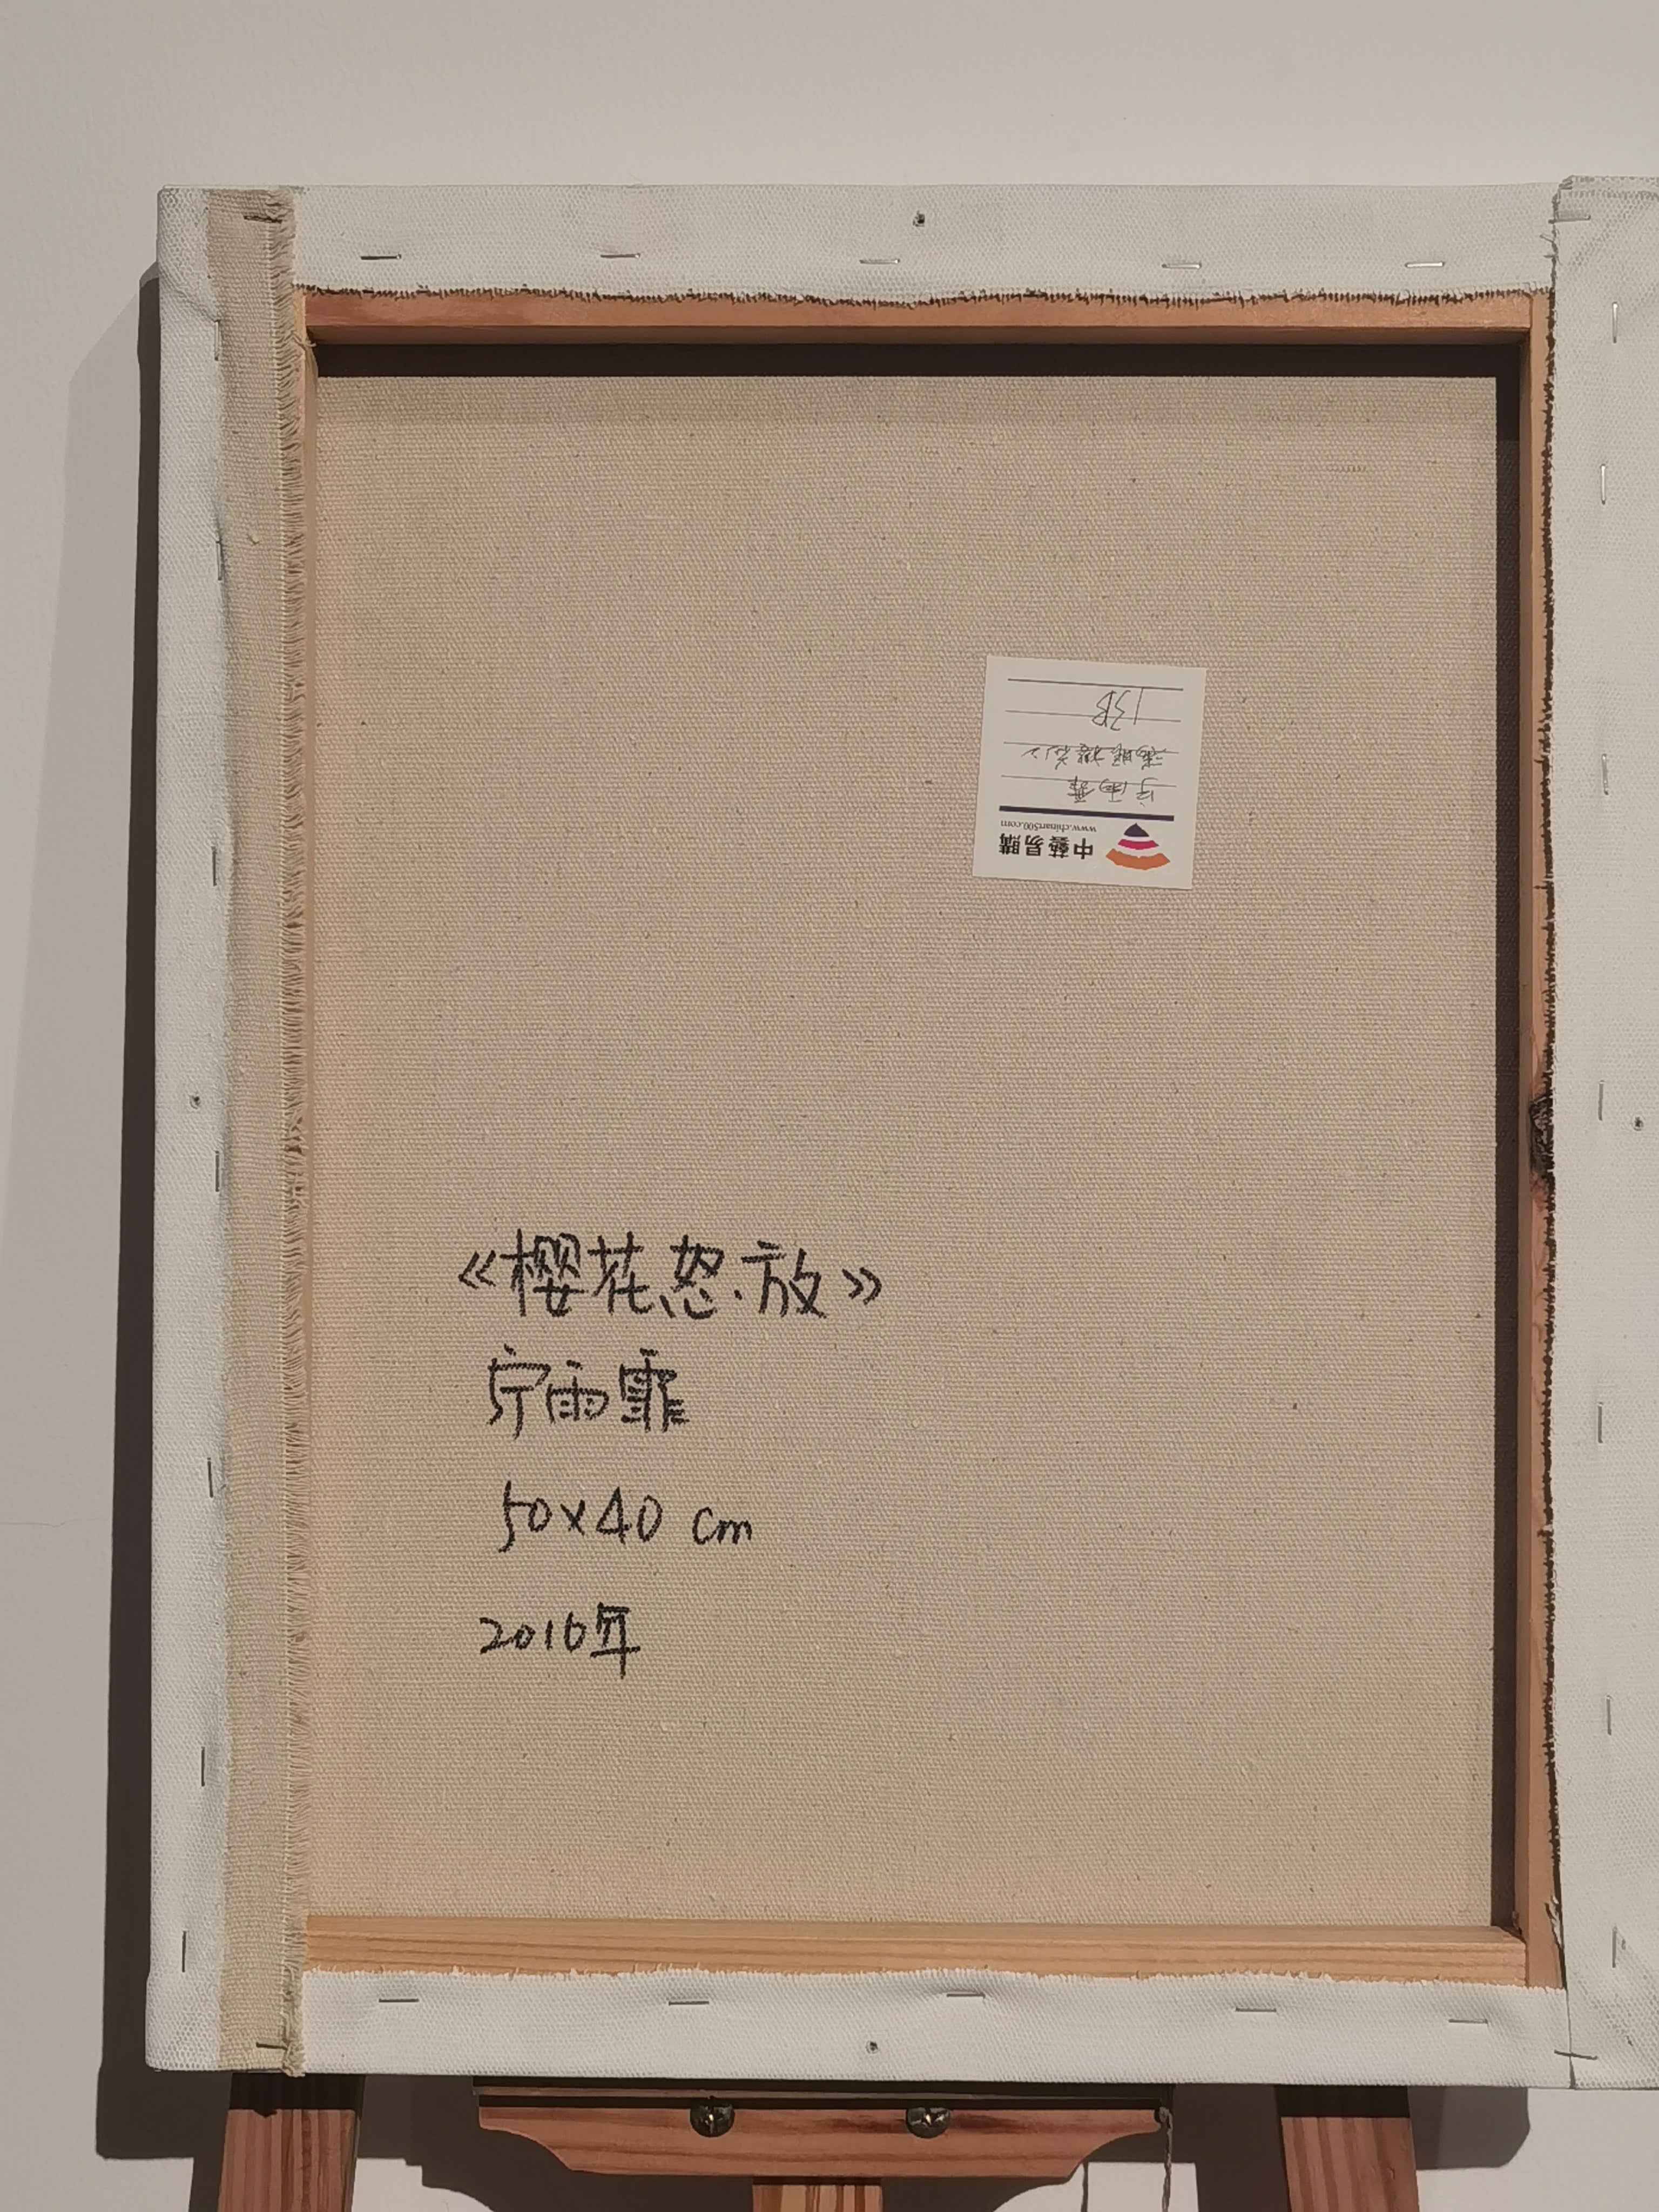 中藝易購
www.chinart500.com
宁雨霏
13B
《樱花怒放》
宁雨霏
50x40 cm
2016年